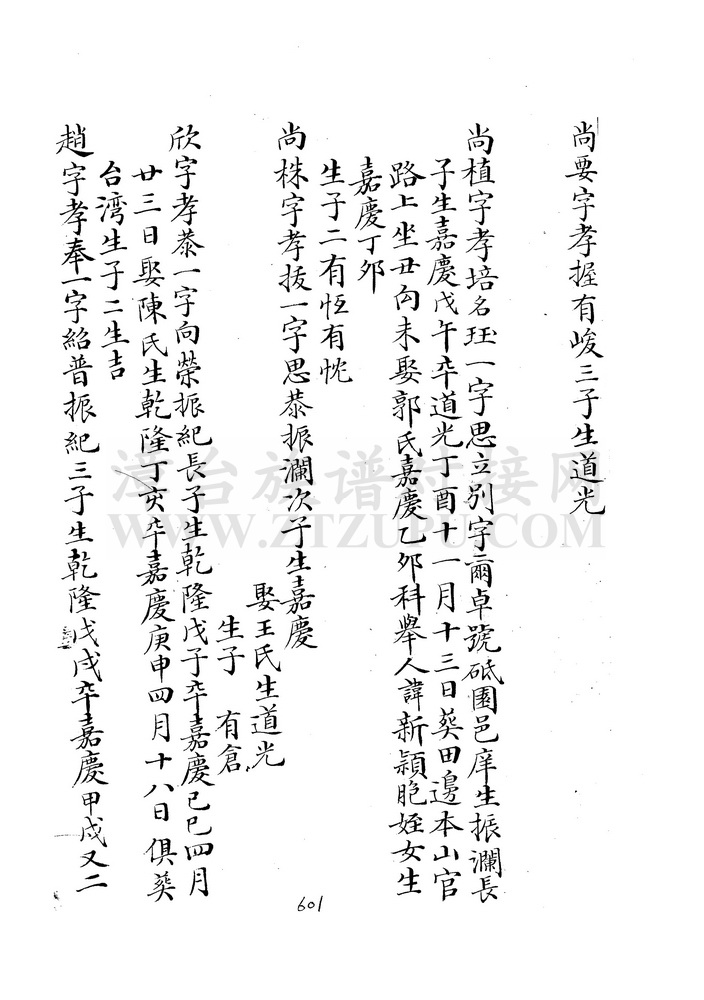 尚要字孝握有峻三子生道光
尚植字孝培名珏一字思立别字爾卓號砥園邑庠生振瀾長
子生嘉慶戊午卒道光丁酉十一月十三日葵田邊本山官
路上坐丑向未娶郭氏嘉慶乙夘科舉人諱新穎胞姪女生
嘉慶丁夘
生子二有恆有忱
尚株字孝拔一字思恭振瀾次子生嘉慶
娶王氏生道光
生子 有倉
欣字孝恭一字向榮振紀長子生乾隆戊子卒嘉慶己巳四月
廿三日娶陳氏生乾隆丁亥卒嘉慶庚申四月十八日俱葵
台湾生子二生吉
趙字孝奉一字紹普振紀三子生乾隆戊戌卒嘉慶甲戌又二
601
漳台族谱对接网
WWW.ZTZUPU.COM